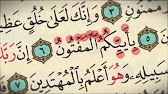 مَمْنُونٍ ٣ وَإِنَّكَ لَعَلَىٰ خُلُقٍ
٥ بِأَييِّكُمُ ٱلْمَفْتُونُ ٦ إِنَّ
سَبِيلِهِۦ وَهُوَ أَعْلَمُ بِٱلْمُهْتَدِينَ ٧